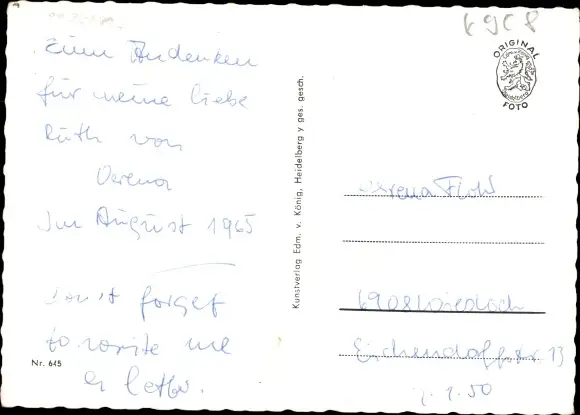 Zum Andenken
für meine liebe
Ruth von
Verena
Im August 1965
Don't forget
to vorite me
a letter.
Nr. 645
Kunstverlag Edm. v. König, Heidelberg y ges. gesch.
ORIGINAL
FOTO
Verena
6908 Wiesloch
Eichendorffstr 13